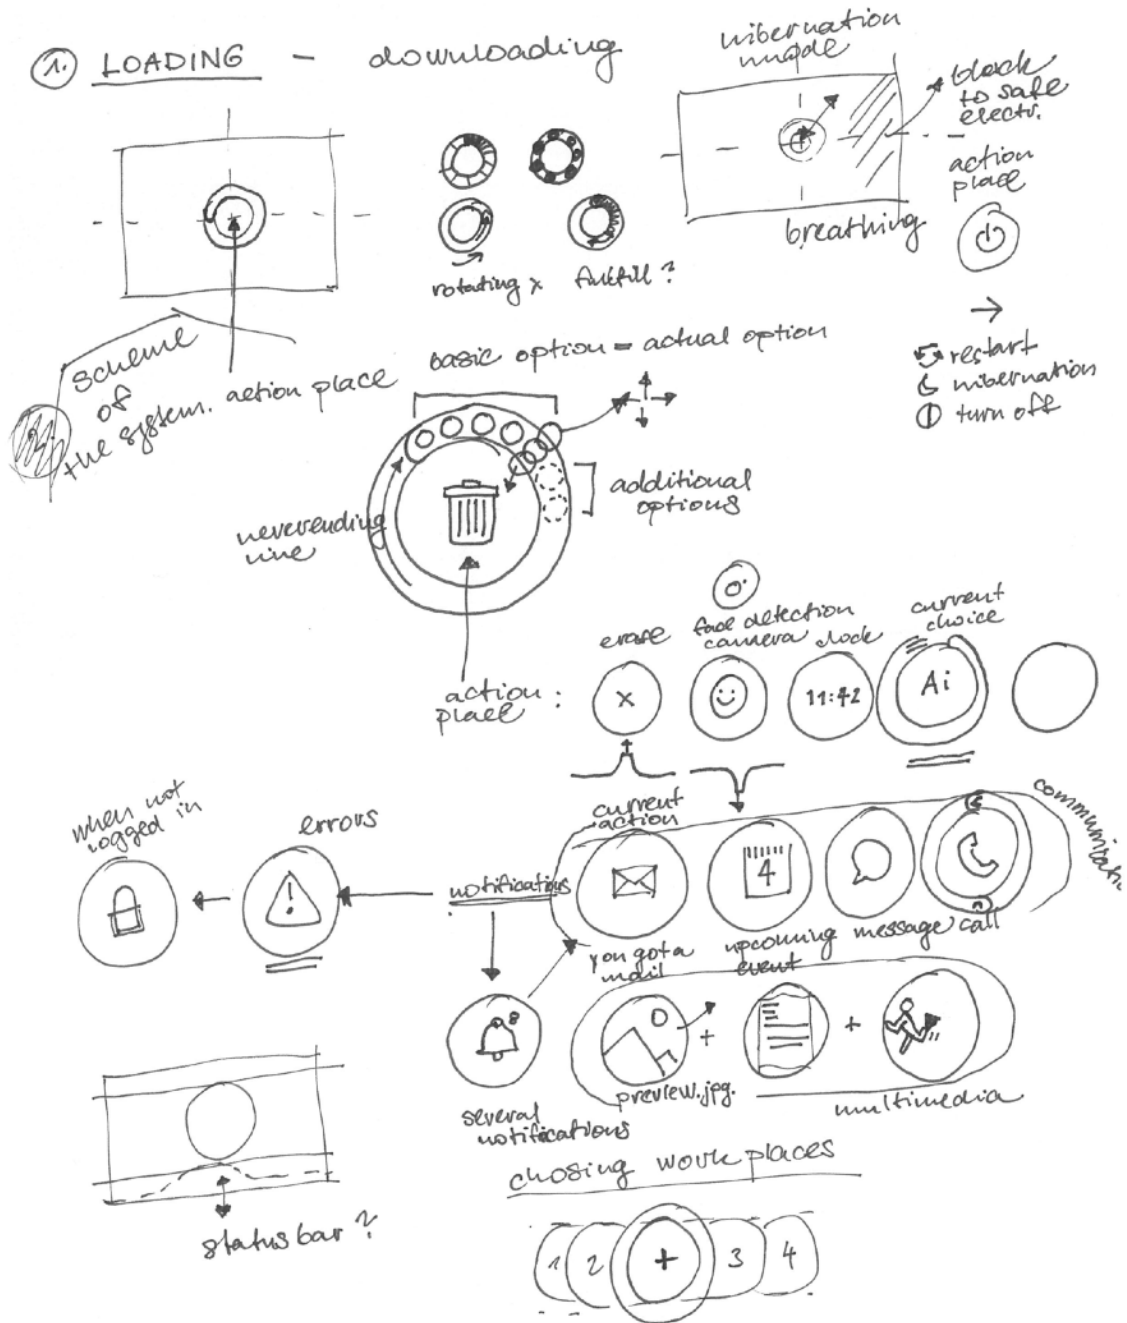 1. LOADING - downloading
nibernation
mode
black
to safe
electr.
action
place
breathing
rotating x fulfill?
restart
nibernation
turn off
scheme
of
the system.
action place
basic option = actual option
additional
options
neverending
nine
action
place :
erase
face detection
camera
clock
current
choice
x
11:42
Ai
when not
logged in
errors
!
notifications
current
action
4
communicati
you got a
mail
upcoming
event
message
call
8
several
notifications
preview.jpg.
+
+
multimedia
status bar ?
chosing work places
1 2 + 3 4